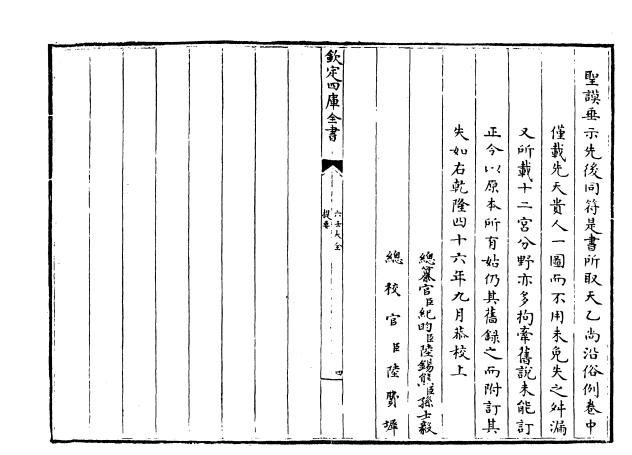 聖謨垂示先後同符是書所取天乙尚沿俗例卷中
僅載先天貴人一圖而不用未免失之舛漏
又所載十二宮分野亦多拘牽舊說未能訂
正今以原本所有姑仍其舊錄之而附訂其
失如右乾隆四十六年九月恭校上
總纂官臣紀昀臣陸錫熊臣孫士毅
總校官臣陸費墀
欽定四庫全書
六壬大全
提要
四